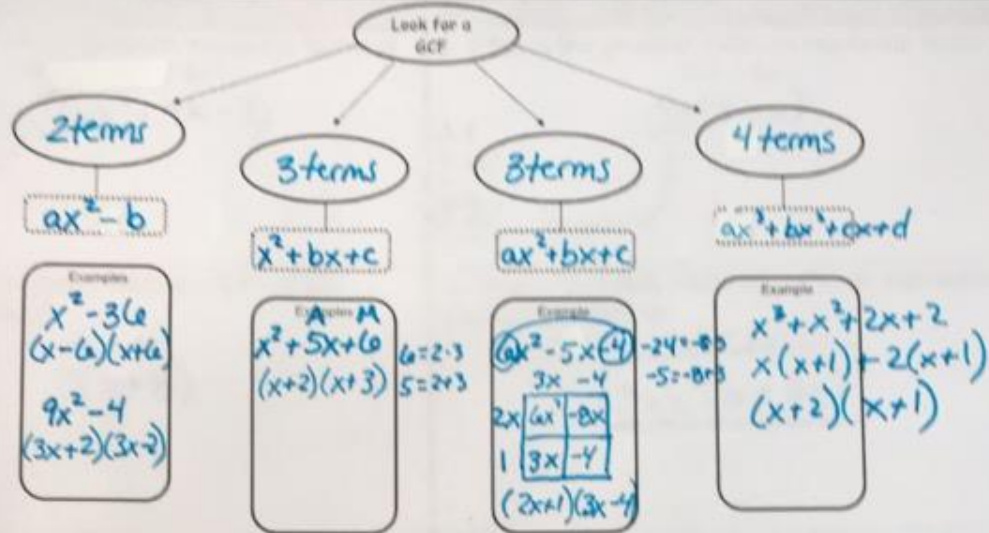 Look for a
GCF
2 terms
ax² - b
Examples
x² - 36
(x-6)(x+6)
9x² - 4
(3x+2)(3x-2)
3 terms
x² + bx + c
Examples
A M
x² + 5x + 6
(x+2)(x+3)
6 = 2·3
5 = 2+3
3 terms
ax² + bx + c
Example
6x² - 5x - 4
-24 = -8·3
-5 = -8+3
3x -4
2x 6x² -8x
1 3x -4
(2x+1)(3x-4)
4 terms
ax³ + bx² + cx + d
Example
x³ + x² + 2x + 2
x(x+1) + 2(x+1)
(x+2)(x+1)